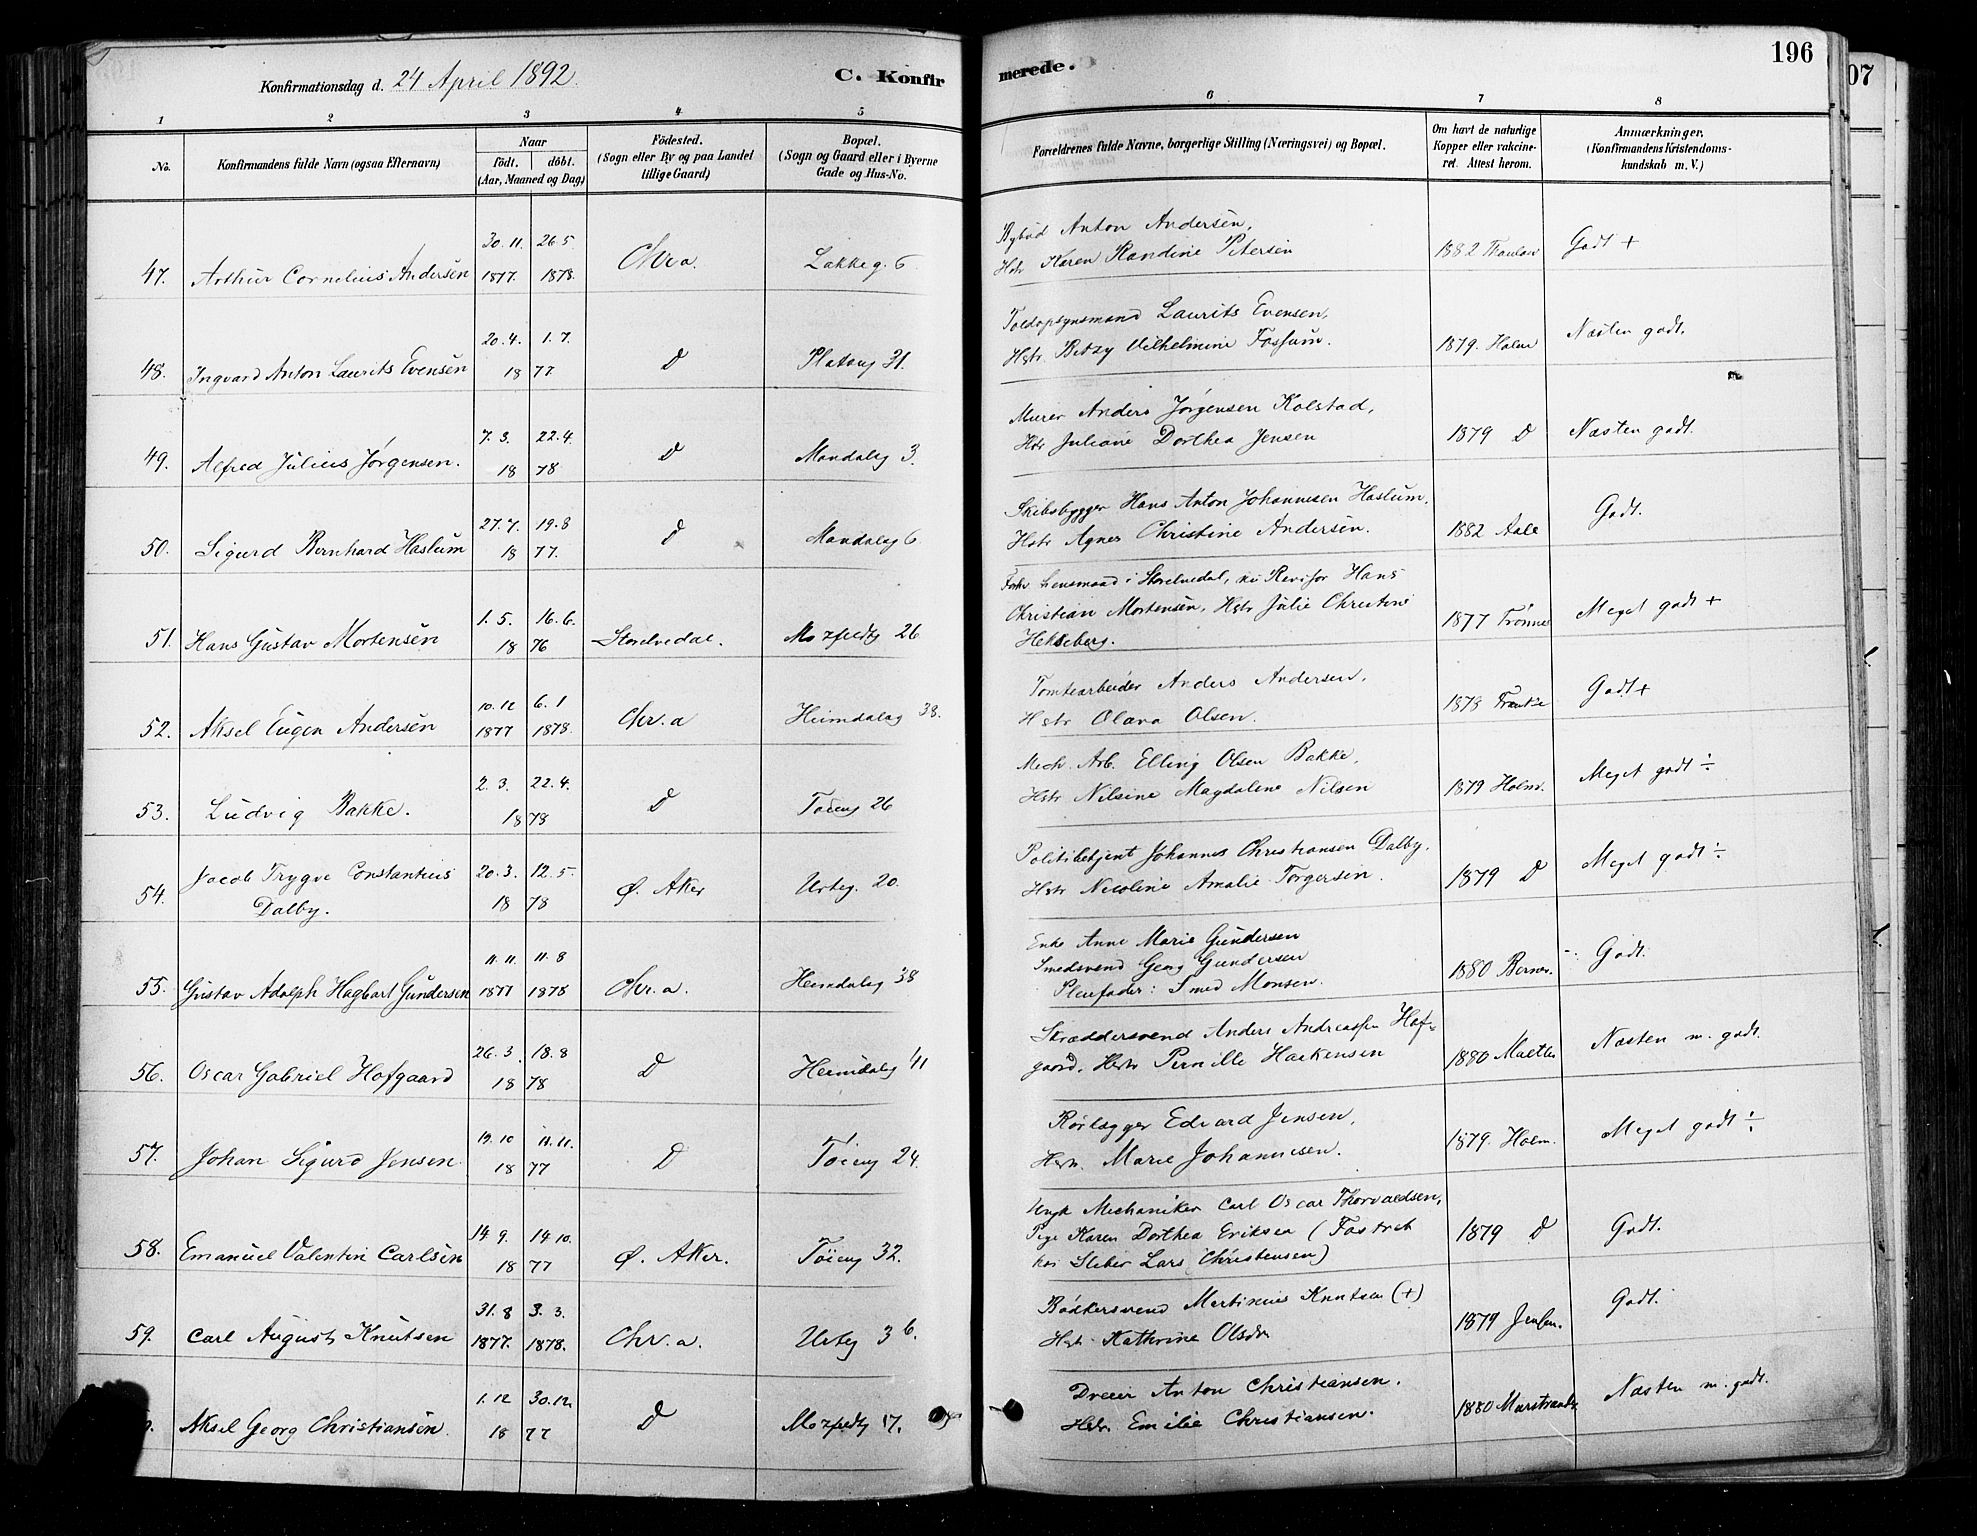 Konfirmationsdag d. 24 April 1892.
C. Konfirmerede.
196
07
1 2 3 4 5 6 7 8
No.
Konfirmandens fulde Navn (ogsaa Efternavn)
Naar
födt. döbt.
(Aar, Maaned og Dag)
Födested.
(Sogn eller By og paa Landet
tillige Gaard)
Bopæl.
(Sogn og Gaard eller i Byerne
Gade og Hus-No.
Forældrenes fulde Navne, borgerlige Stilling (Næringsvei) og Bopæl.
Om havt de naturlige
Kopper eller vakcine-
ret. Attest herom.
Anmærkninger.
(Konfirmandens Kristendoms-
kundskab m. V.)
47. Arthur Cornelius Andersen
30.11. 1877. 26.5. 1878.
Chr.a.
Lakkeg. 6
Bybud Anton Andersen,
Hstr Karen Randine Petersen
1882 Thaulow
Godt +
48. Ingvard Anton Laurits Evensen
20.4. 1.7.
18 77.
D
Platoug 31.
Toldopsynsmand Laurits Evensen,
Hstr. Betzy Vilhelmine Fossum.
1879. Holm
Næsten godt.
49. Alfred Julius Jørgensen.
7.3. 22.4.
18 78
D
Mandalsg 3.
Murer Anders Jørgensen Kolstad,
Hstr Juliane Dorthea Jensen
1879 D
Næsten godt.
50. Sigurd Bernhard Haslum
27.7. 19.8
18 77.
D
Mandalsg 6
Skibsbygger Hans Anton Johannesen Haslum,
Hstr Agnes Christine Andersen.
1882 Aale
Godt.
51. Hans Gustav Mortensen
1.5. 16.6.
18 76
Storelvedal.
Motzfeldtg 26
Forhv Lensmand i Storelvedal, nu Revisor Hans
Christian Mortensen, Hstr Julie Christine
Hekseberg.
1877 Trønnes
Meget godt +
52. Aksel Eugen Andersen
10.12 1877 6.1 1878.
Chr.a
Heimdalsg 38.
Tomtearbeider Anders Andersen,
Hstr Olava Olsen.
1878
Godt +
53. Ludvig Bakke.
2.3. 22.4.
18 78
D
Tøieng 26
Mech. Arb. Elling Olsen Bakke,
Hstr Nilsine Magdalene Nilsen
1879 Holm.
Meget godt ÷
54. Jacob Trygve Constantius
Dalby.
20.3. 12.5.
18 78
Ø. Aker
Urteg. 20.
Politibetjent Johannes Christiansen Dalby,
Hstr Nicoline Amalie Torgersen.
1879 D
Meget godt ÷
55. Gustav Adolph Hagbart Gundersen
11.11. 1877 11.8 1878
Chr.a.
Heimdalsg 38
Enke Anne Marie Gundersen
Smedsvend Georg Gundersen
Pleiefader: Smed Monsen.
1880 Berner.
Godt.
56. Oscar Gabriel Hofgaard
26.3. 18.8
18 78
D
Heimdalsg 41
Skræddersvend Anders Andreassen Hof-
gaard, Hstr Pernille Haekensen
1880
Næsten m. godt.
57. Johan Sigurd Jensen
19.10 11.11.
18 77
D
Tøieng 24.
Rørlægger Edvard Jensen,
Hstr. Marie Johannesen.
1879. Holm.
Meget godt ÷
58. Emanuel Valentin Carlsen
14.9. 14.10.
18 77
Ø. Aker.
Tøieng 32.
Ungk Mechaniker Carl Oscar Thorvaldsen,
Pige Karen Dorthea Eriksen (Fostret
hos Sliber Lars Christensen)
1879 D
Godt.
59. Carl August Knutsen
31.8 1877. 3.3. 1878.
Chr.a.
Urteg 36.
Bødkersvend Martinius Knutsen (+)
Hstr. Kathrine Olsdr
1879 Jensen.
Godt.
Aksel Georg Christiansen.
1.12 30.12.
18 77
D
Motzfeldtg 17.
Dreier Anton Christiansen.
Hstr. Emilie Christiansen.
1880 Marstrand
Næsten m. godt.